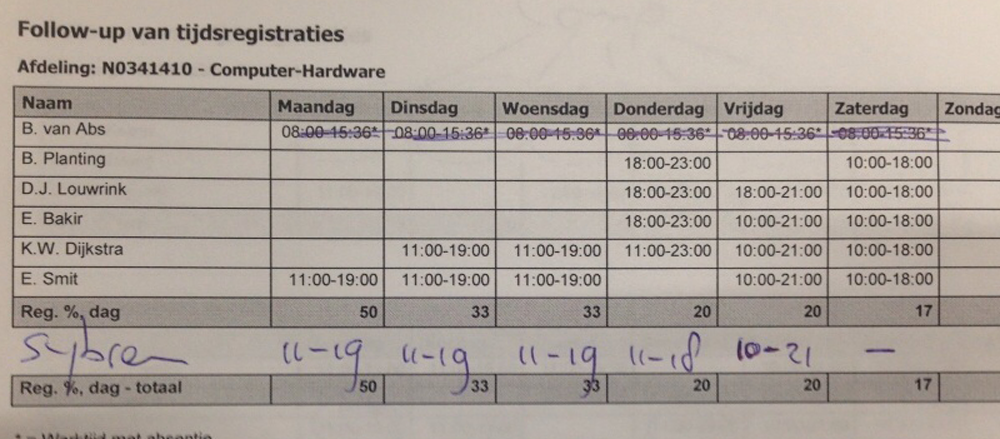 Follow-up van tijdsregistraties
Afdeling: N0341410 - Computer-Hardware
Naam Maandag Dinsdag Woensdag Donderdag Vrijdag Zaterdag Zondag
B. van Abs 08:00-15:36* 08:00-15:36* 08:00-15:36* 08:00-15:36* 08:00-15:36* 08:00-15:36*
B. Planting 18:00-23:00 10:00-18:00
D.J. Louwrink 18:00-23:00 18:00-21:00 10:00-18:00
E. Bakir 18:00-23:00 10:00-21:00 10:00-18:00
K.W. Dijkstra 11:00-19:00 11:00-19:00 11:00-23:00 10:00-21:00 10:00-18:00
E. Smit 11:00-19:00 11:00-19:00 11:00-19:00 10:00-21:00 10:00-18:00
Reg. %, dag 50 33 33 20 20 17
Sybren 11-19 11-19 11-19 11-18 10-21 —
Reg. %, dag - totaal 50 33 33 20 20 17
* = Werktijd met absentie